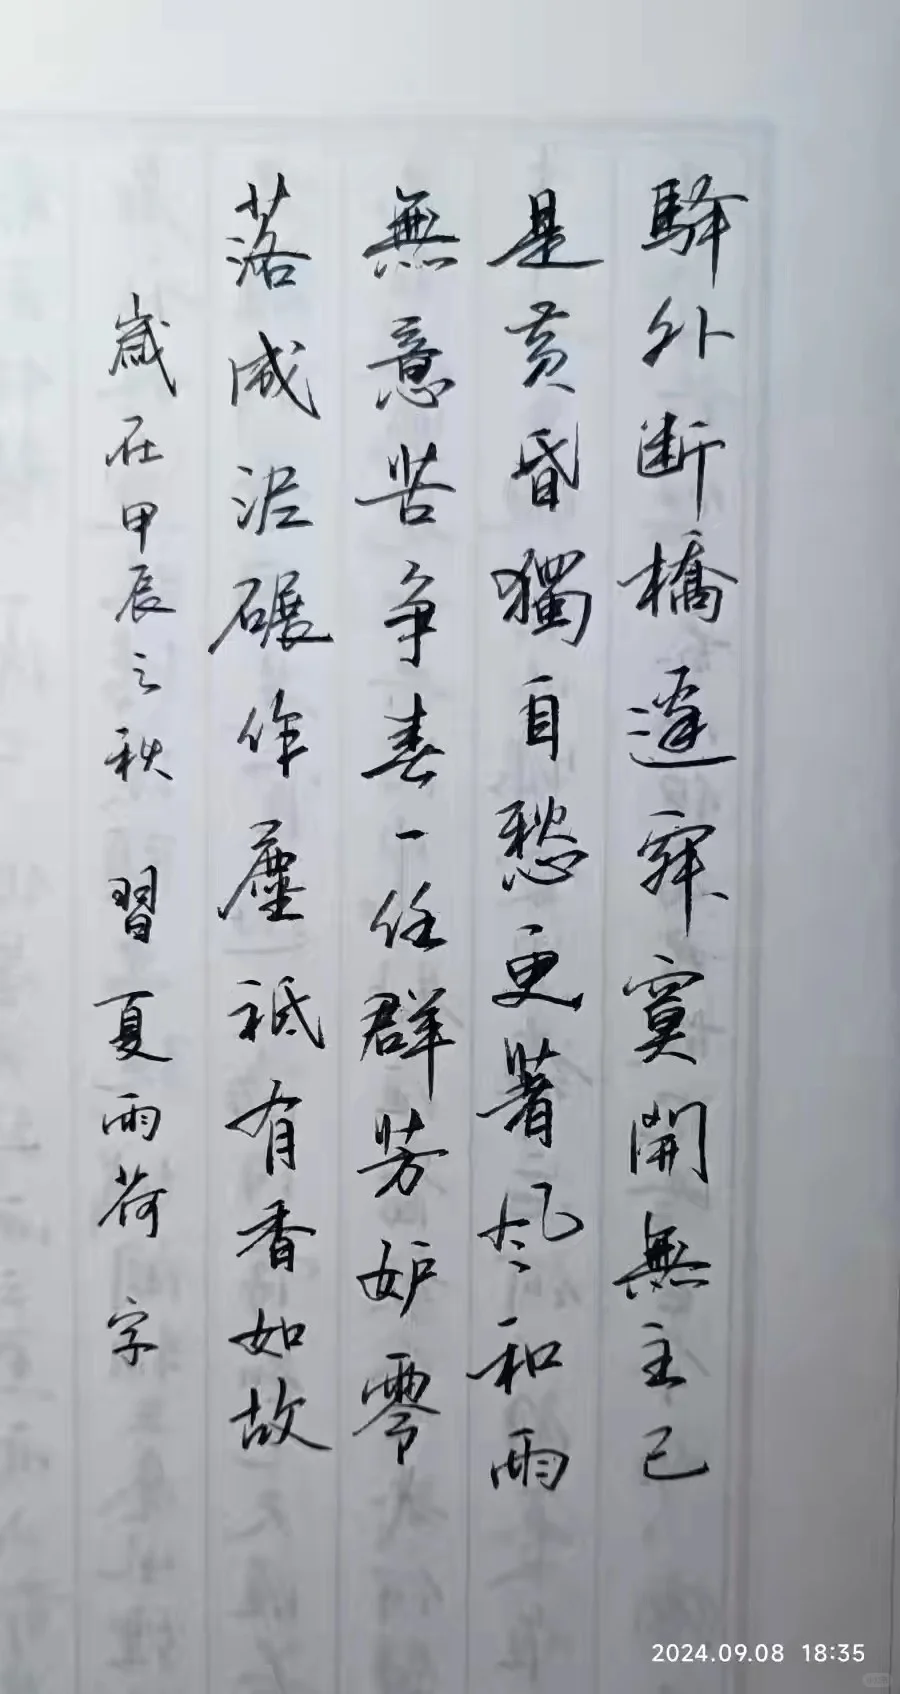 驛外斷橋邊寂寞開無主已
是黃昏獨自愁更著风和雨
無意苦争春一任群芳妒零
落成泥碾作塵祗有香如故
歲在甲辰之秋 習夏雨荷 字
2024.09.08 18:35